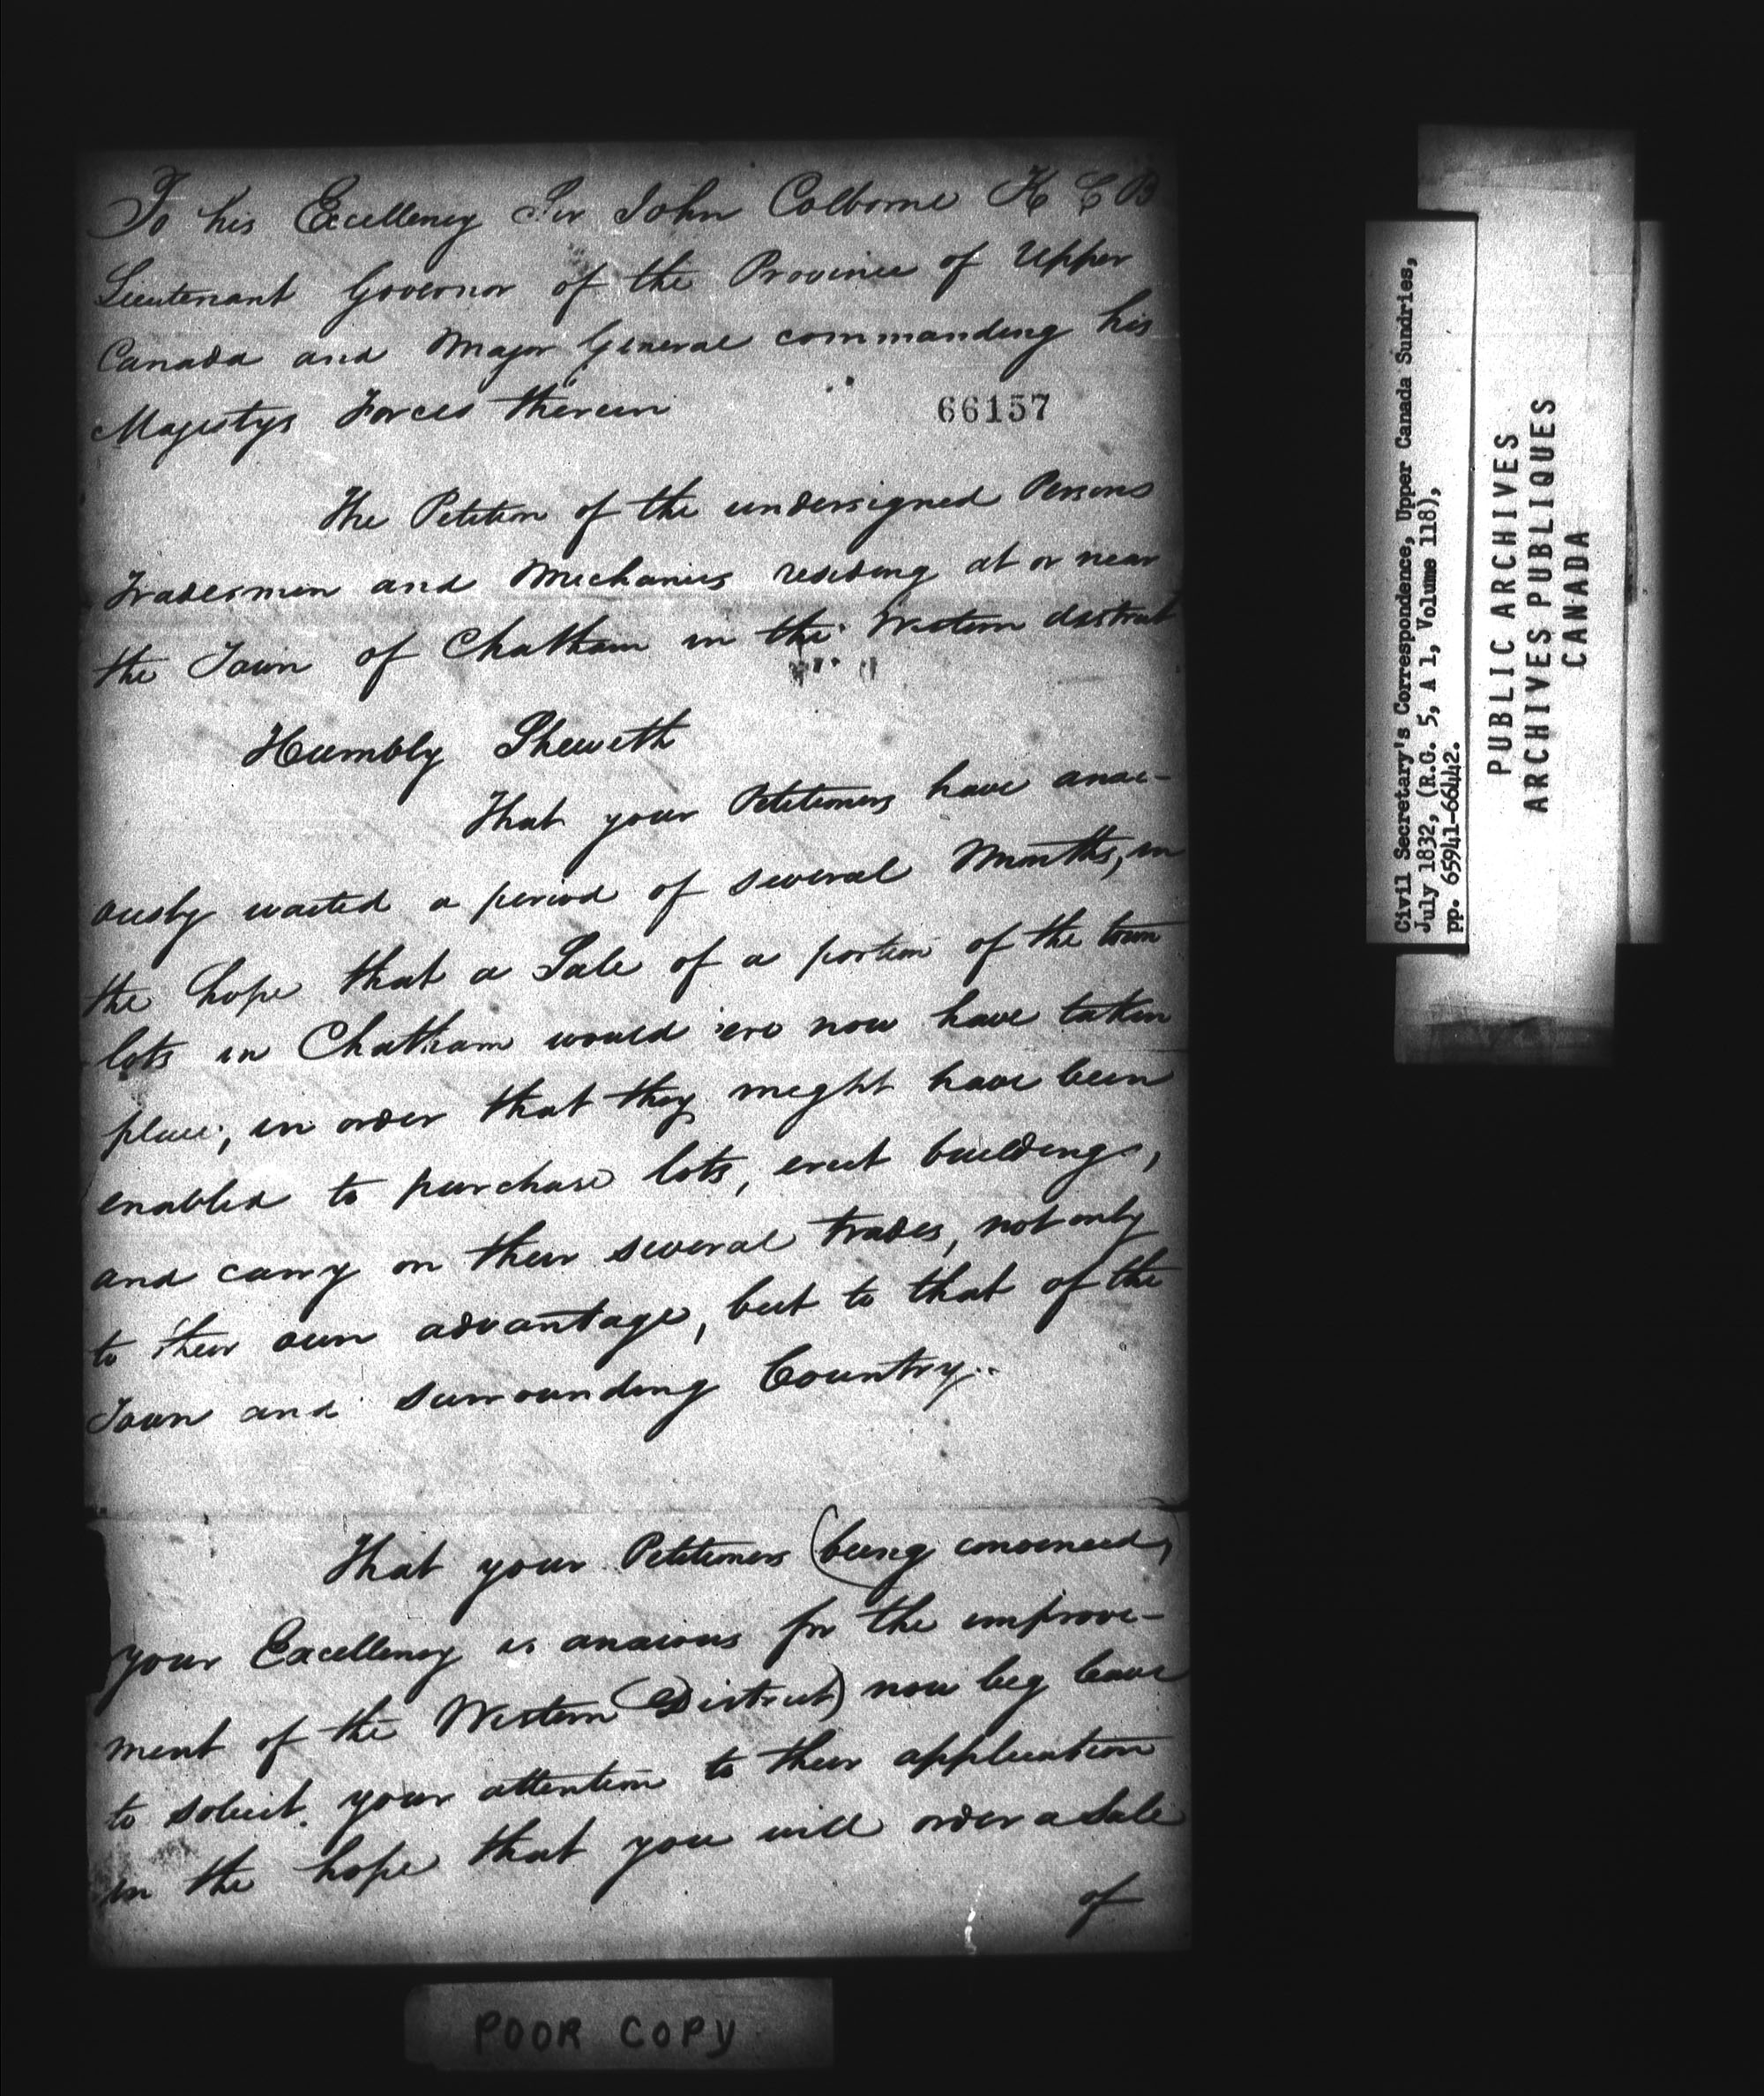 To his Excellency Sir John Colborne K C B
Lieutenant Governor of the Province of Upper
Canada and Major General commanding his
Majestys Forces therein
66157
The Petition of the undersigned Persons
Tradesmen and Mechanics residing at or near
the Town of Chatham in the Western district
Humbly Sheweth
That your Petitioners have anxi-
ously waited a period of several Months, in
the hope that a Sale of a portion of the town
lots in Chatham would 'ere now have taken
place, in order that they might have been
enabled to purchase lots, erect buildings,
and carry on their several trades, not only
to their own advantage, but to that of the
Town and surrounding Country..
That your Petitioners (being convinced,
your Excellency is anxious for the improve-
ment of the Western District) now beg leave
to solicit your attention to their application
in the hope that you will order a Sale
of
Civil Secretary's Correspondence, Upper Canada Sundries,
July 1832, (R.G. 5, A 1, Volume 118),
pp. 65941-66442.
PUBLIC ARCHIVES
ARCHIVES PUBLIQUES
CANADA
POOR COPY